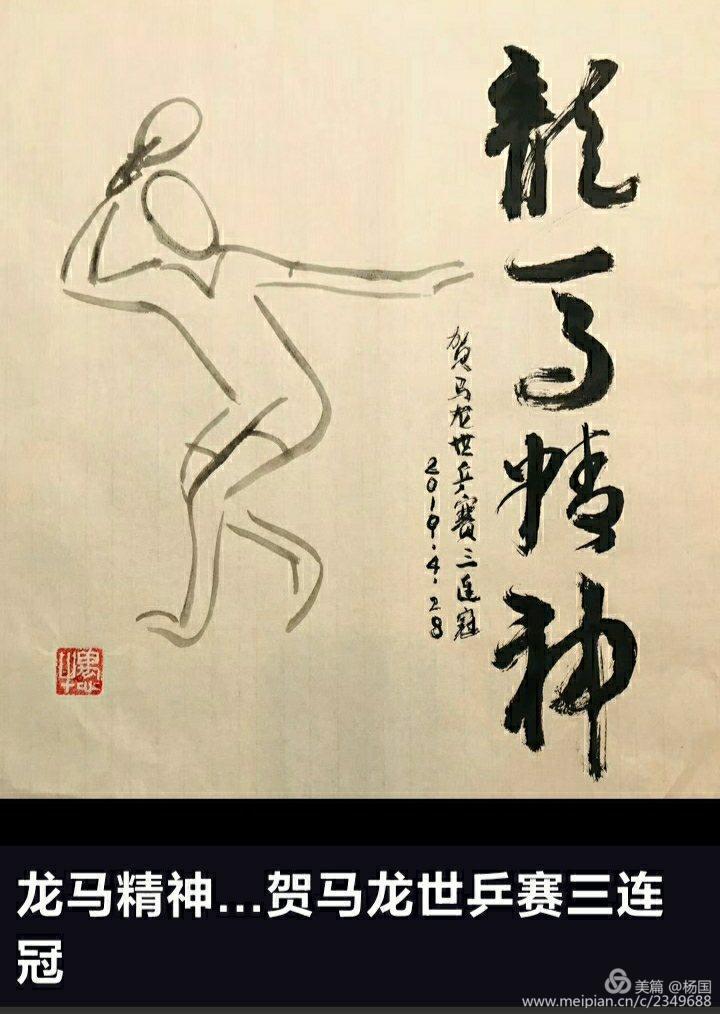 龍马精神
贺马龙世乒赛三连冠
2019.4.28
龙马精神...贺马龙世乒赛三连
冠
美篇 @杨国
www.meipian.cn/c/2349688